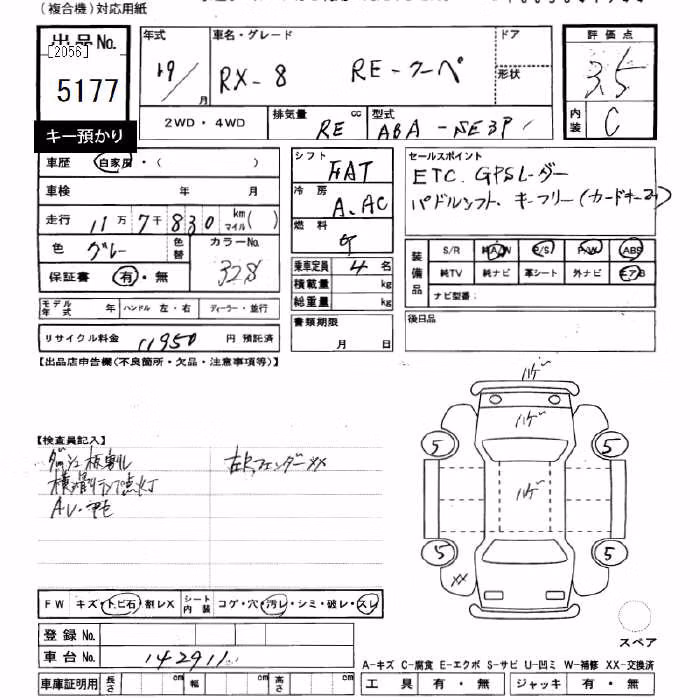 (複合機)対応用紙
出品No.
[2056]
5177
キー預かり
年式
19/月
車名・グレード
RX-8 RE-クーペ
ドア
形状
評価点
3.5
内装
C
2WD・4WD
排気量 cc
RE
型式
ABA-SE3P
車歴 自家用・( )
車検 年 月
走行 11万7千830 km マイル( )
色 グレー 色替 カラーNo.
32S
保証書 有・無
シフト
FAT
冷房
A.AC
燃料
ガ
乗車定員 4名
積載量 kg
総重量 kg
セールスポイント
ETC. GPSレーダー
パドルシフト、キーフリー(カードキーのみ)
装備品
S/R 純A/W P/S P/W ABS
純TV 純ナビ 革シート 外ナビ エアB
ナビ型番:
モデル年式 年 ハンドル 左・右 ディーラー・並行
リサイクル料金 11950 円 預託済
書類期限
月 日
後日品
【出品店申告欄(不良箇所・欠品・注意事項等)】
ハゲ
ハゲ
ハゲ
5 5
5 5
XX
【検査員記入】
ダッシュ板割れ
横滑りランプ点灯
左Fフェンダー XX
FW キズ・トビ石・割レX シート内装 コゲ・穴・汚レ・シミ・破レ・スレ
登録No.
車台No. 142911
車庫証明用 長さ cm 幅 cm 高さ cm
スペア
A-キズ C-腐食 E-エクボ S-サビ U-凹ミ W-補修 XX-交換済
工具 有・無 ジャッキ 有・無